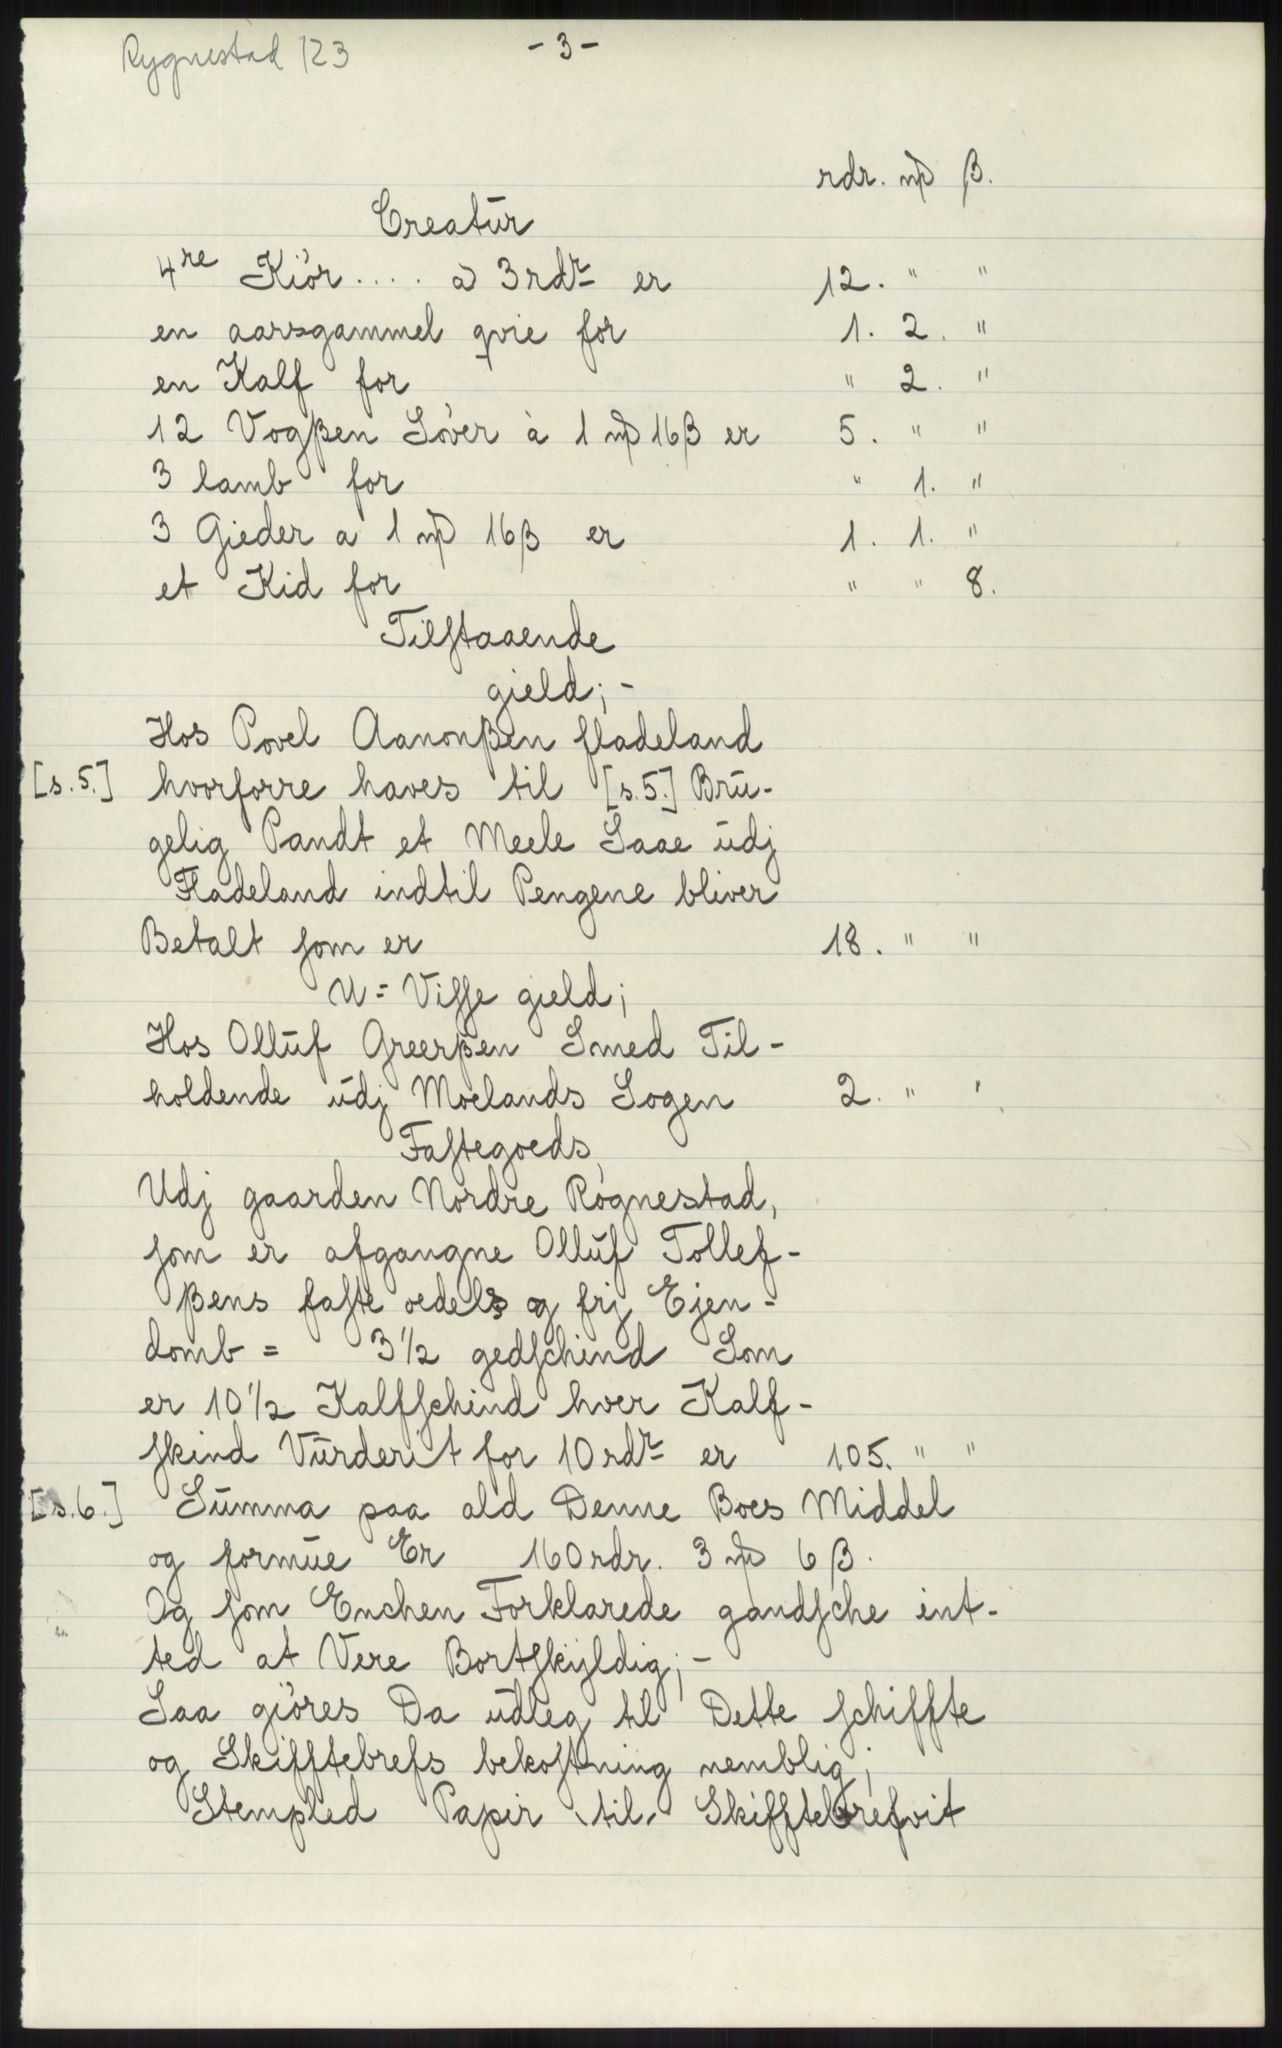 Rygnestad 123
- 3 -
rdr. mſ β.
Creatür
4re Kiör .... a 3 rdr er 12. " "
en aarsgammel qvie for 1. 2. "
en Kalf for " 2. "
12 Vogßen Söver à 1 mſ 16 β er 5. " "
3 lamb for " 1. "
3 Gieder a 1 mſ 16 β er 1. 1. "
et Kid for " " 8.
Tilſtaaende
gield; -
Hos Povel Aanonßen fladeland
[s. 5.] hvorforre haves til [s. 5.] Brü-
gelig Pandt et Meele Saae üdj
Fladeland indtil Pengene bliver
Betalt ſom er 18. " "
U = Viſſe gield;
Hos Ollüf Greerßen Smed Til-
holdende üdj Moelands Sogen 2. " "
Faſtegoeds,
Udj gaarden Nordre Rögnestad,
ſom er afgangne Ollüf Tollef-
ßens faſte oedels og frij Ejen-
domb = 3 1/2 gedſchind Som
er 10 1/2 Kalfſchind hver Kalf-
ſkind Vürderit for 10 rdr er 105. " "
[s. 6.] Sümma paa ald Denne Boes Middel
og formüe Er 160 rdr. 3 mſ 6 β.
Og ſom Enchen Forklarede gandſche int-
ted at Vere Bortſkÿldig; -
Saa giöres Da üdleg til Dette ſchiffte
og Skifftebrefs bekoſtning nemblig;
Stempled Papir til Skifftebrefvit